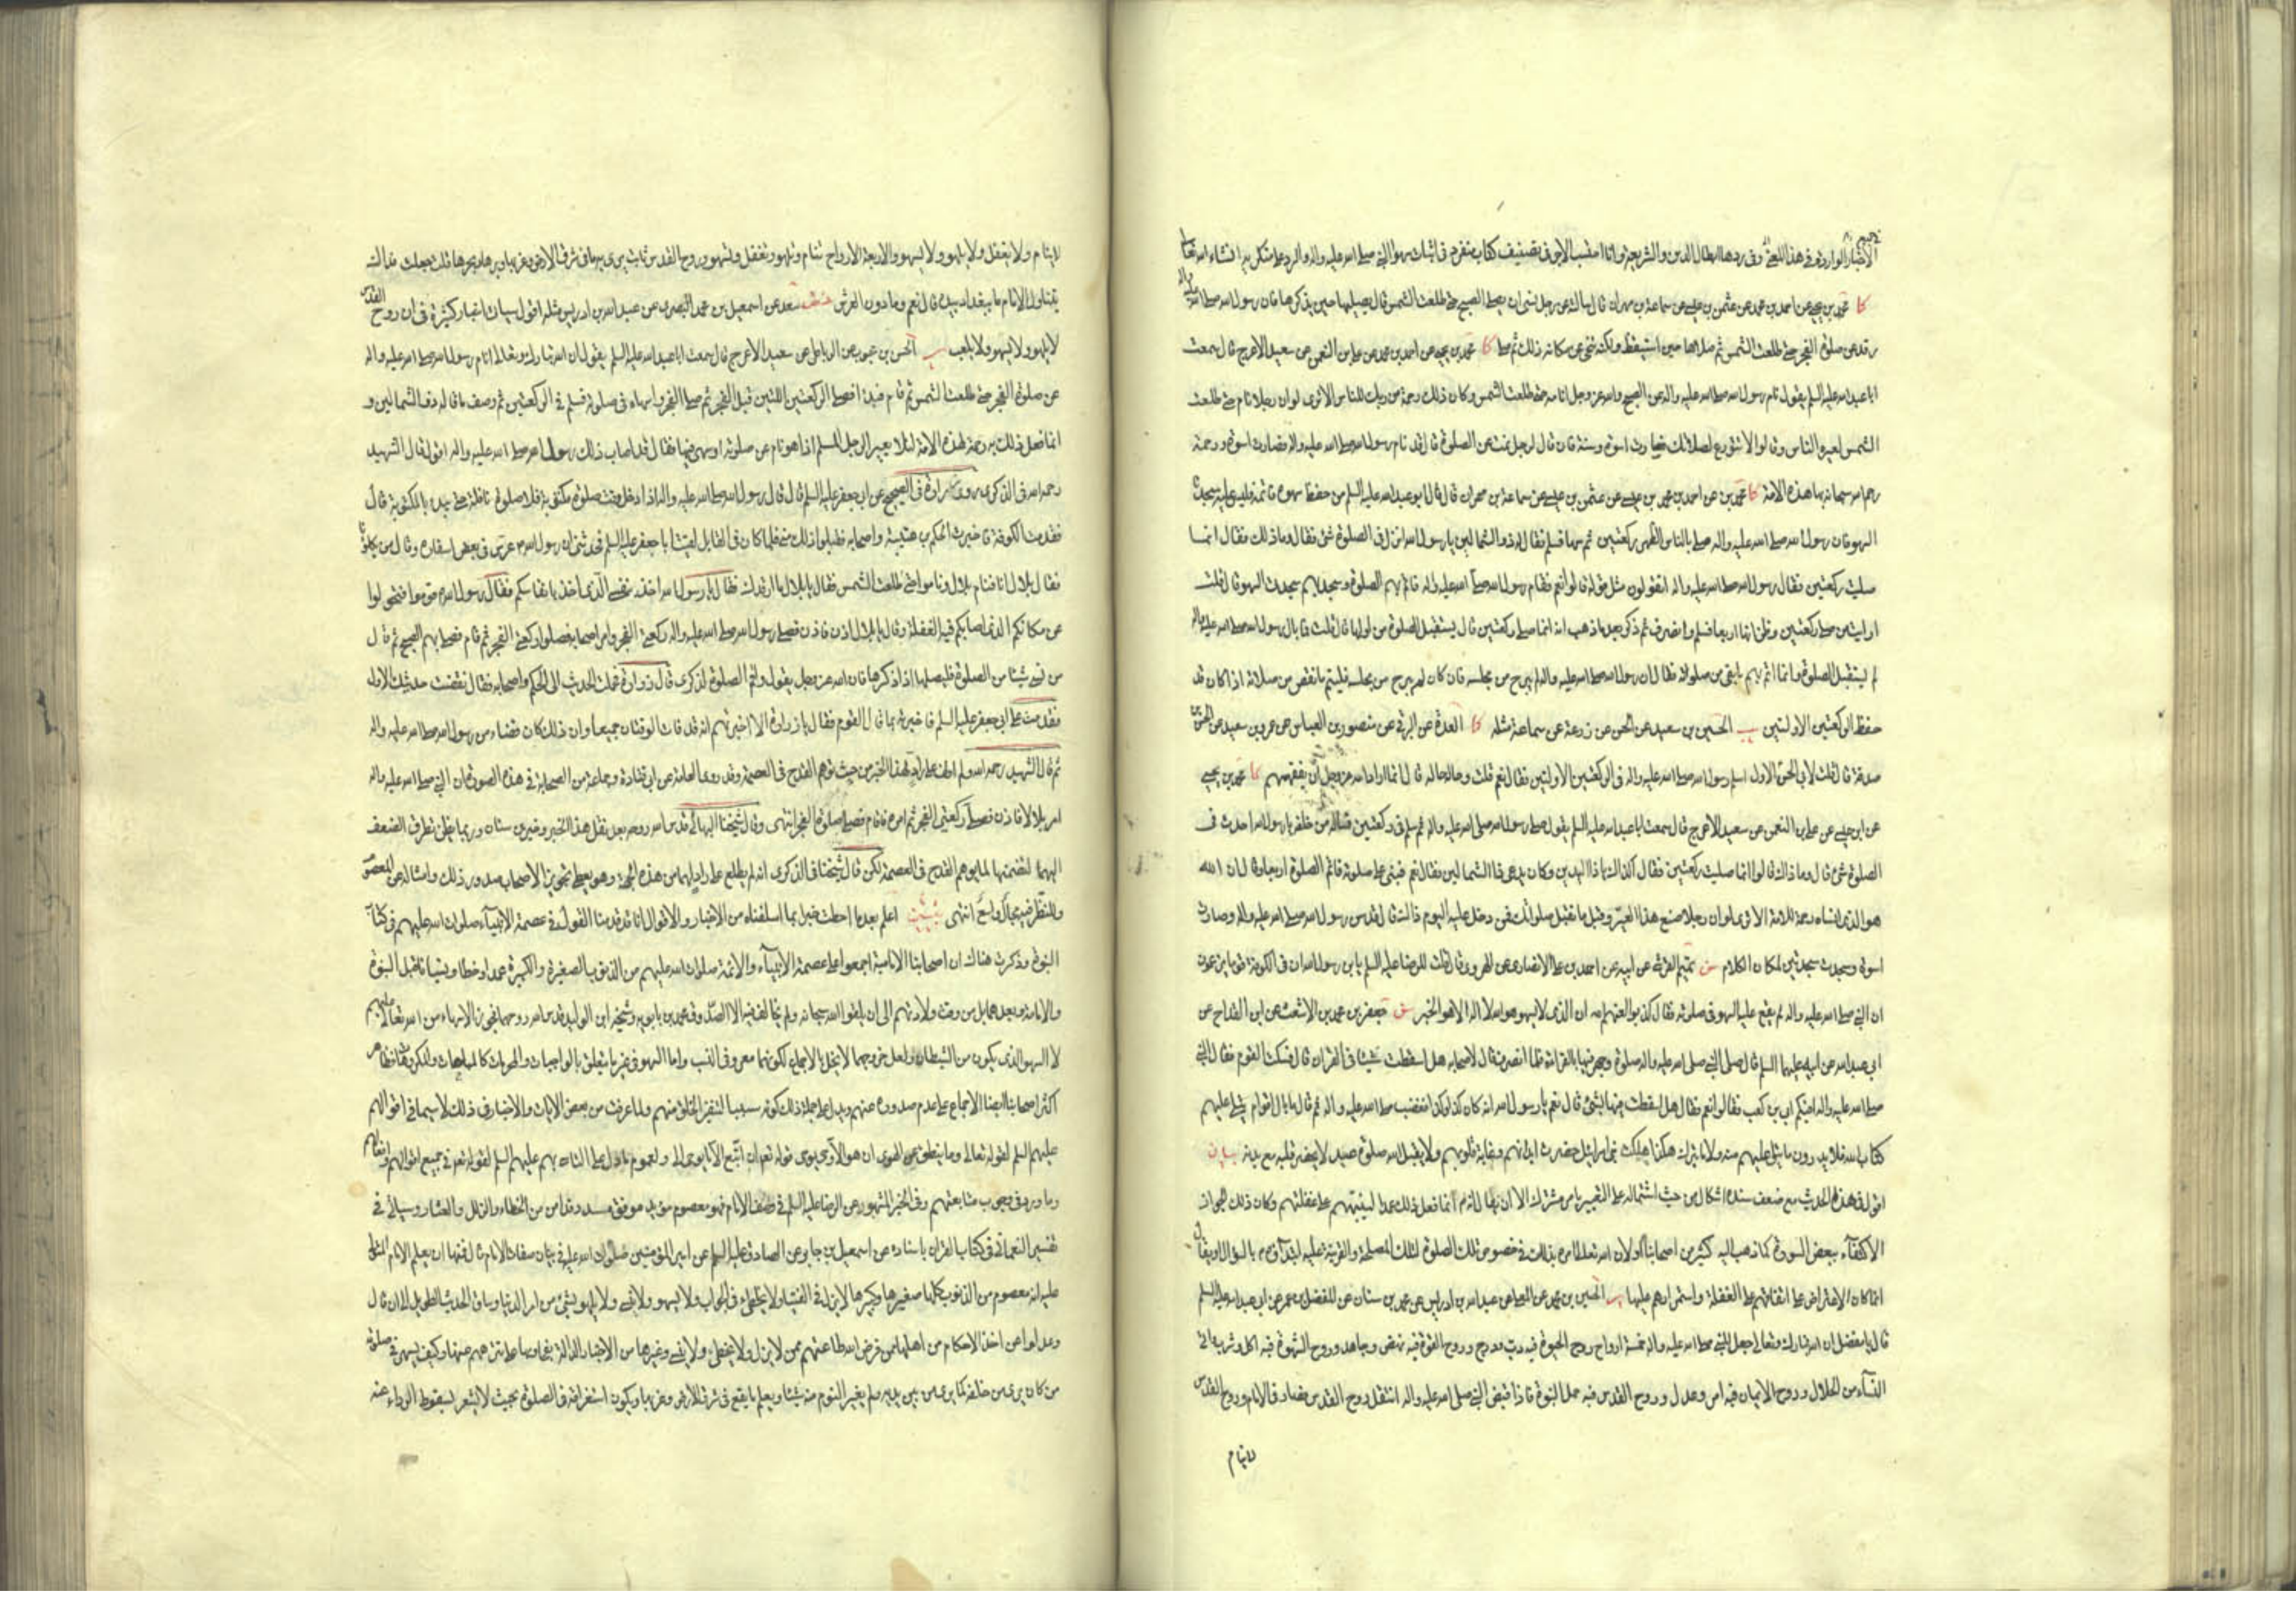 الأخبار الواردة في هذا المعنى وفي ردها إبطال الدين والشريعة وأنا أحتسب الأجر في تصنيف كتاب منفرد في إثبات سهو النبي صلى الله عليه وآله والرد على منكريه إنشاء الله تعالى
كا محمد بن يحيى عن احمد بن محمد عن عثمن بن عيسى عن سماعة بن مهران قال سألته عن رجل نسي ان يصلي الصبح حتى طلعت الشمس قال يصليها حين يذكرها فان رسول الله صلى الله عليه وآله
رقد عن صلوة الفجر حتى طلعت الشمس ثم صلاها حين استيقظ ولكنه تنحى عن مكانه ذلك ثم صلى كا محمد بن يحيى عن احمد بن محمد عن علي بن النعمن عن سعيد الاعرج قال سمعت
ابا عبد الله عليه السلم يقول نام رسول الله صلى الله عليه وآله عن الصبح والله عز وجل انامه حتى طلعت الشمس وكان ذلك رحمة من ربك للناس الا ترى لو ان رجلا نام حتى طلعت
الشمس لعيره الناس وقالوا لا تتورع لصلاتك فصارت اسوة وسنة فان قال لرجل نمت عن الصلوة قال قد نام رسول الله صلى الله عليه وآله فصارت اسوة ورحمة
رحم الله سبحانه بها هذه الامة كا محمد بن عن احمد بن محمد بن عيسى عن عثمن بن عيسى عن سماعة بن مهران قال قال ابو عبد الله عليه السلم من حفظ سهوه فاتمه فليس عليه سجدتا
السهو فان رسول الله صلى الله عليه وآله صلى بالناس الظهر ركعتين ثم سها فسلم فقال له ذو الشمالين يا رسول الله انزل في الصلوة شئ فقال وما ذلك فقال انما
صليت ركعتين فقال رسول الله صلى الله عليه وآله اتقولون مثل قوله قالوا نعم فقام رسول الله صلى الله عليه وآله فاتم بهم الصلوة وسجد بهم سجدتي السهو قال قلت
ارايت من صلى ركعتين وظن انها اربعا فسلم وانصرف ثم ذكر بعد ما ذهب انه انما صلى ركعتين قال يستقبل الصلوة من اولها قال قلت فما بال رسول الله صلى الله عليه وآله
لم يستقبل الصلوة وانما اتم بهم ما بقي من صلوته فقال ان رسول الله صلى الله عليه وآله لم يبرح من مجلسه فان كان لم يبرح من مجلسه فليتم ما نقص من صلاته اذا كان قد
حفظ الركعتين الاولتين يب الحسين بن سعيد عن الحسن عن زرعة عن سماعة مثله كا العدة عن البرقي عن منصور بن العباس عن عمرو بن سعيد عن الحسن بن
صدقة قال قلت لابي الحسن الاول اسلم رسول الله صلى الله عليه وآله في الركعتين الاولتين فقال نعم قلت وحاله حاله قال انما اراد الله عز وجل ان يفقههم كا محمد بن يحيى
عن ابن عيسى عن علي بن النعمن عن سعيد الاعرج قال سمعت ابا عبد الله عليه السلم يقول صلى رسول الله صلى الله عليه وآله ثم سلم في ركعتين فسأله من خلفه يا رسول الله احدث في
الصلوة شئ قال وما ذاك قالوا انما صليت ركعتين فقال اكذاك يا ذا اليدين وكان يدعى ذا الشمالين فقال نعم فبنى على صلوته فاتم الصلوة اربعا وقال ان الله
هو الذي انساه رحمة للامة الا ترى لو ان رجلا صنع هذا لعير وقيل ما تقبل صلوتك فمن دخل عليه اليوم ذاك قال قد سن رسول الله صلى الله عليه وآله وصارت
اسوة وسجد سجدتين لمكان الكلام ن تميم القرشي عن ابيه عن احمد بن علي الانصاري عن الهروي قال قلت للرضا عليه السلم يا بن رسول الله ان في الكوفة قوما يزعمون
ان النبي صلى الله عليه وآله لم يقع عليه السهو في صلوته فقال كذبوا لعنهم الله ان الذي لا يسهو هو الله لا اله الا هو الخبر سن جعفر بن محمد بن الاشعث عن ابن القداح عن
ابي عبد الله عن ابيه عليهما السلم قال صلى النبي صلى الله عليه وآله صلوة وجهر فيها بالقراءة فلما انصرف قال لاصحابه هل اسقطت شيئا في القران قال فسكت القوم فقال النبي
صلى الله عليه وآله افيكم ابي بن كعب فقالوا نعم فقال هل اسقطت فيها بشئ قال نعم يا رسول الله انه كان كذا وكذا فغضب صلى الله عليه وآله ثم قال ما بال اقوام يتلى عليهم
كتاب الله فلا يدرون ما يتلى عليهم منه ولا ما يترك هكذا هلكت بنو اسرائيل حضرت ابدانهم وغابت قلوبهم ولا يقبل الله صلوة عبد لا يحضر قلبه مع بدنه بيان
اقول في هذا الحديث مع ضعف سنده اشكال من حيث اشتماله على التعيير بامر مشترك الا ان يقال انه ص انما فعل ذلك عمدا لينبههم على غفلتهم وكان ذلك لجواز
الاكتفاء ببعض السورة كما ذهب اليه كثير من اصحابنا او لان الله تعالى امره بذلك في خصوص تلك الصلوة لتلك المصلحة والقرينة عليه ابتداؤه ص بالسؤال او يقال
انما كان الاعتراض على اتفاقهم على الغفلة واستمرارهم عليها ير الحسين بن محمد عن المعلى عن عبد الله بن ادريس عن محمد بن سنان عن المفضل بن عمر عن ابي عبد الله عليه السلم
قال يا مفضل ان الله تبارك وتعالى جعل للنبي صلى الله عليه وآله خمسة ارواح روح الحيوة فيه دب ودرج وروح القوة فيه نهض وجاهد وروح الشهوة فيه اكل وشرب واتى
النساء من الحلال وروح الايمان فيه امر وعدل وروح القدس فيه حمل النبوة فاذا قبض النبي صلى الله عليه وآله انتقل روح القدس فصار في الامام وروح القدس
لا ينام
لا ينام ولا يغفل ولا يلهو ولا يسهو والاربعة الارواح تنام وتلهو وتغفل وتسهو وروح القدس ثابت يرى به ما في شرق الارض وغربها وبرها وبحرها قلت جعلت فداك
يتناول الامام ما ببغداد بيده قال نعم وما دون العرش خص سعد عن اسمعيل بن محمد البصري عن عبد الله بن ادريس مثله اقول سيأتي اخبار كثيرة في ان روح القدس
لا يلهو ولا يسهو ولا يلعب يب الحسن بن محبوب عن الرباطي عن سعيد الاعرج قال سمعت ابا عبد الله عليه السلم يقول ان الله تبارك وتعالى انام رسول الله صلى الله عليه وآله
عن صلوة الفجر حتى طلعت الشمس ثم قام فبدا فصلى الركعتين اللتين قبل الفجر ثم صلى الفجر واسهاه في صلوته فسلم في الركعتين ثم وصف ما قاله ذو الشمالين و
انما فعل ذلك به رحمة لهذه الامة لئلا يعير الرجل المسلم اذا هو نام عن صلوته او سهى فيها فقال قد اصاب ذلك رسول الله صلى الله عليه وآله اقول قال الشهيد
رحمه الله في الذكرى روى زرارة في الصحيح عن ابي جعفر عليه السلم قال قال رسول الله صلى الله عليه وآله اذا دخل وقت صلوة مكتوبة فلا صلوة نافلة حتى يبدء بالمكتوبة قال
فقدمت الكوفة فاخبرت الحكم بن عتيبة واصحابه فقبلوا ذلك مني فلما كان في القابل لقيت ابا جعفر عليه السلم فحدثني ان رسول الله ص عرس في بعض اسفاره وقال من يكلؤنا
فقال بلال انا فنام بلال وناموا حتى طلعت الشمس فقال يا بلال ما ارقدك فقال يا رسول الله اخذ بنفسي الذي اخذ بانفاسكم فقال رسول الله ص قوموا فتحولوا
عن مكانكم الذي اصابكم فيه الغفلة وقال يا بلال اذن فاذن فصلى رسول الله صلى الله عليه وآله ركعتي الفجر وامر اصحابه فصلوا ركعتي الفجر ثم قام فصلى بهم الصبح ثم قال
من نسي شيئا من الصلوة فليصلها اذا ذكرها فان الله عز وجل يقول واقم الصلوة لذكرى قال زرارة فحملت الحديث الى الحكم واصحابه فقال نقضت حديثك الاول
فقدمت على ابي جعفر عليه السلم فاخبرته بما قال القوم فقال يا زرارة الا اخبرتهم انه قد فات الوقتان جميعا وان ذلك كان قضاء من رسول الله صلى الله عليه وآله
ثم قال الشهيد رحمه الله ولم اقف على راد لهذا الخبر من حيث توهم القدح في العصمة وقد روى العامة عن ابي قتادة وجماعة من الصحابة في هذه الصورة ان النبي صلى الله عليه وآله
امر بلالا فاذن فصلى ركعتي الفجر ثم امره فاقام فصلى صلوة الفجر انتهى وقال شيخنا البهائي قدس الله روحه بعد نقل هذا الخبر وخبر ابن سنان وربما يظن تطرق الضعف
اليهما لتضمنهما لما يوهم القدح في العصمة لكن قال شيخنا في الذكرى انه لم يطلع على راد لهما من هذه الجهة وهو يعطي تجويز الاصحاب صدور ذلك وامثاله عن المعصوم
وللنظر فيه مجال واسع انتهى تبيين اعلم بعد ما احطت خبرا بما اسلفناه من الاخبار والاقوال انا قد قدمنا القول في عصمة الانبياء صلوات الله عليهم في كتاب
النبوة وذكرت هناك ان اصحابنا الامامية اجمعوا على عصمة الانبياء والائمة صلوات الله عليهم من الذنوب الصغيرة والكبيرة عمدا وخطأ ونسيانا قبل النبوة
والامامة وبعدهما بل من وقت ولادتهم الى ان يلقوا الله سبحانه ولم يخالف فيه الا الصدوق محمد بن بابويه وشيخه ابن الوليد قدس الله روحهما فجوزا الاسهاء من الله تعالى عليهم
لا السهو الذي يكون من الشيطان ولعل خروجهما لا يخل بالاجماع لكونهما معروفي النسب واما السهو في غير ما يتعلق بالواجبات والمحرمات كالمباحات والمكروهات فظاهر
اكثر اصحابنا ايضا الاجماع على عدم صدوره عنهم ويدل على جملة ذلك كونه سببا لنفور الخلق منهم ولما عرفت من بعض الايات والاخبار في ذلك لا سيما في اقوالهم
عليهم السلم لقوله تعالى وما ينطق عن الهوى ان هو الا وحي يوحى وقوله تعالى ان اتبع الا ما يوحى الي ولعموم ما دل على التاسي بهم عليهم السلم لقوله تعالى في جميع اقوالهم وافعالهم
وما ورد في وجوب متابعتهم وفي الخبر المشهور عن الرضا عليه السلم في وصف الامام فهو معصوم مؤيد موفق مسدد قد امن من الخطاء والزلل والعثار وسيأتي في
تفسير النعماني في كتاب القران باسناده عن اسمعيل بن جابر عن الصادق عليه السلم عن امير المؤمنين صلوات الله عليه في بيان صفات الامام قال فمنها ان يعلم الامام المتولى
عليه انه معصوم من الذنوب كلها صغيرها وكبيرها لا يزل في الفتيا ولا يخطئ في الجواب ولا يسهو ولا ينسى ولا يلهو بشئ من امر الدنيا وساق الحديث الطويل الى ان قال
وعدلوا عن اخذ الاحكام من اهلها ممن فرض الله طاعتهم ممن لا يزل ولا يخطئ ولا ينسى وغيرها من الاخبار الدالة بفحاويها على تنزههم عنها وكيف يسهو في صلوته
من كان يرى من خلفه كما يرى من بين يديه ولم يغير النوم منه شيئا ويعلم ما يقع في شرق الارض وغربها ويكون استغراقه في الصلوة بحيث لا يشعر بسقوط الرداء عنه